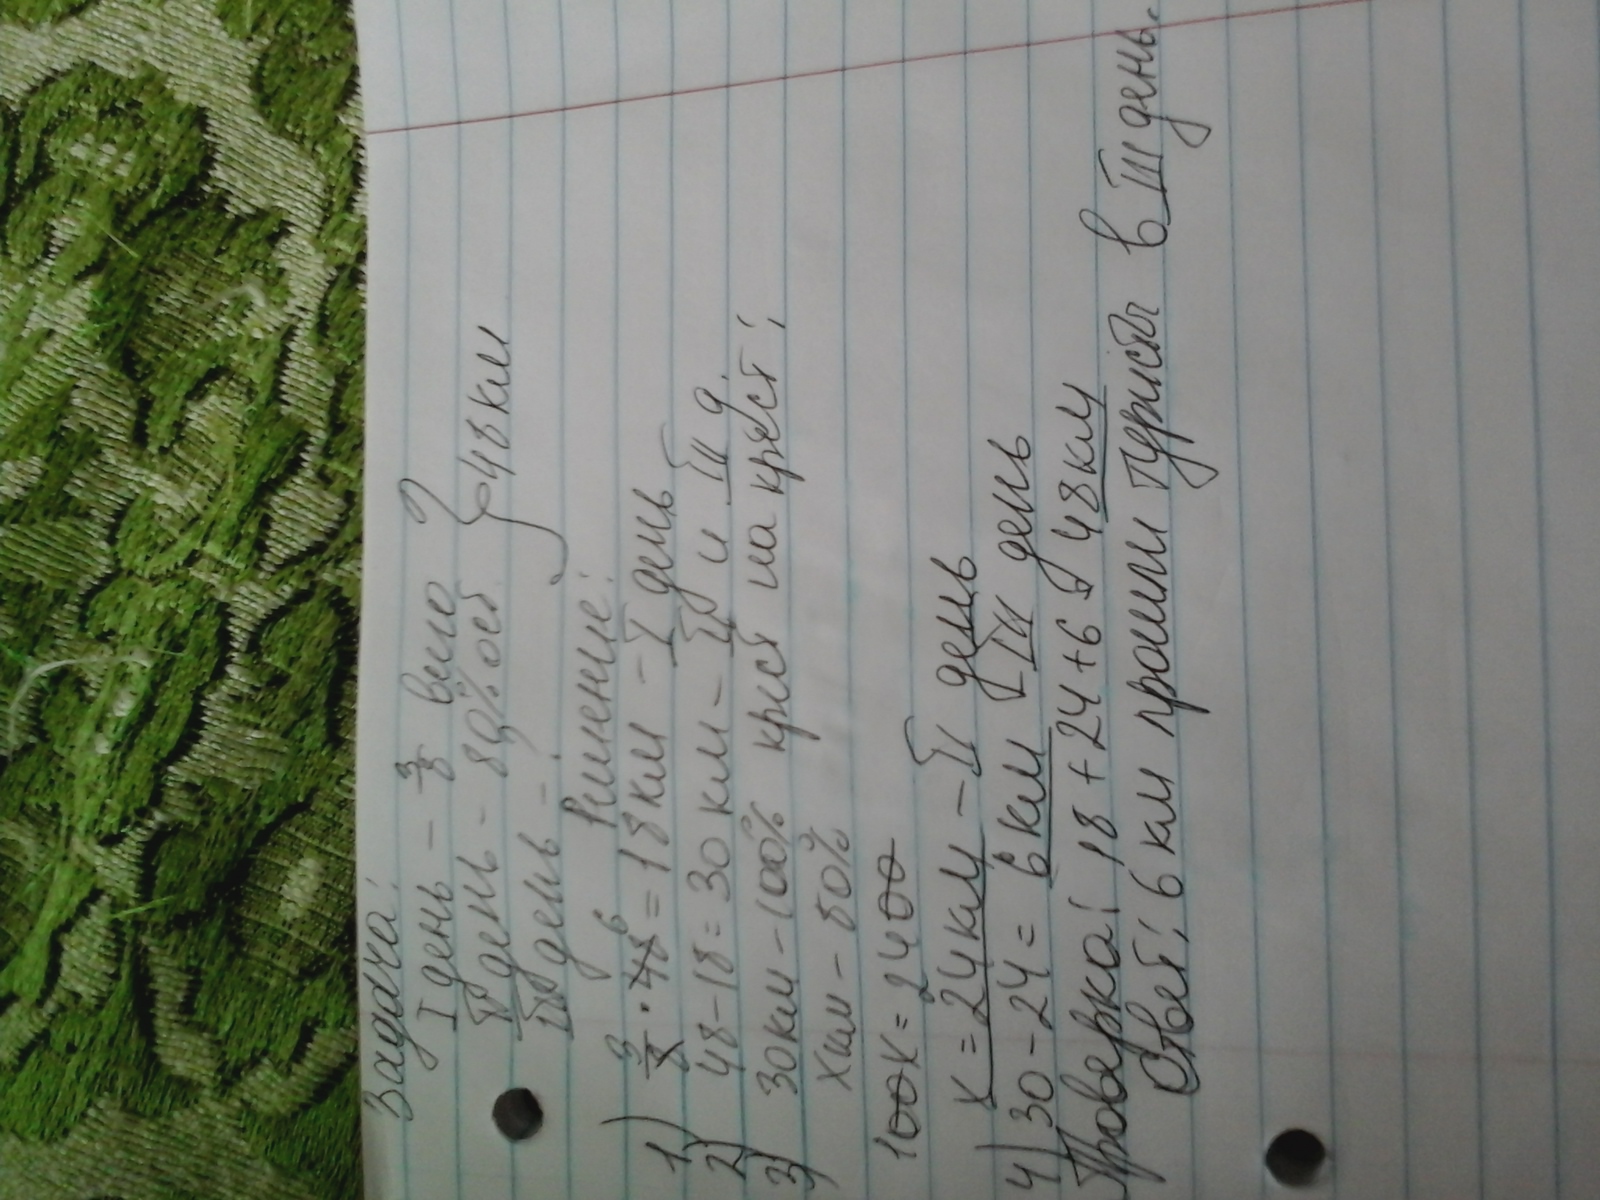 Задача:
I день - 3/8 всего
II день - 80% ост. } - 48 км
III день - ?
Решение:
1) 3/8 · 48 6 = 18 км - I день
2) 48 - 18 = 30 км - II и III д.
3) 30 км - 100% крест на крест;
х км - 80%
100х = 2400
х = 24 км - II день
4) 30 - 24 = 6 км III день
Проверка: 18 + 24 + 6 = 48 км
Ответ: 6 км прошли туристы в III день.